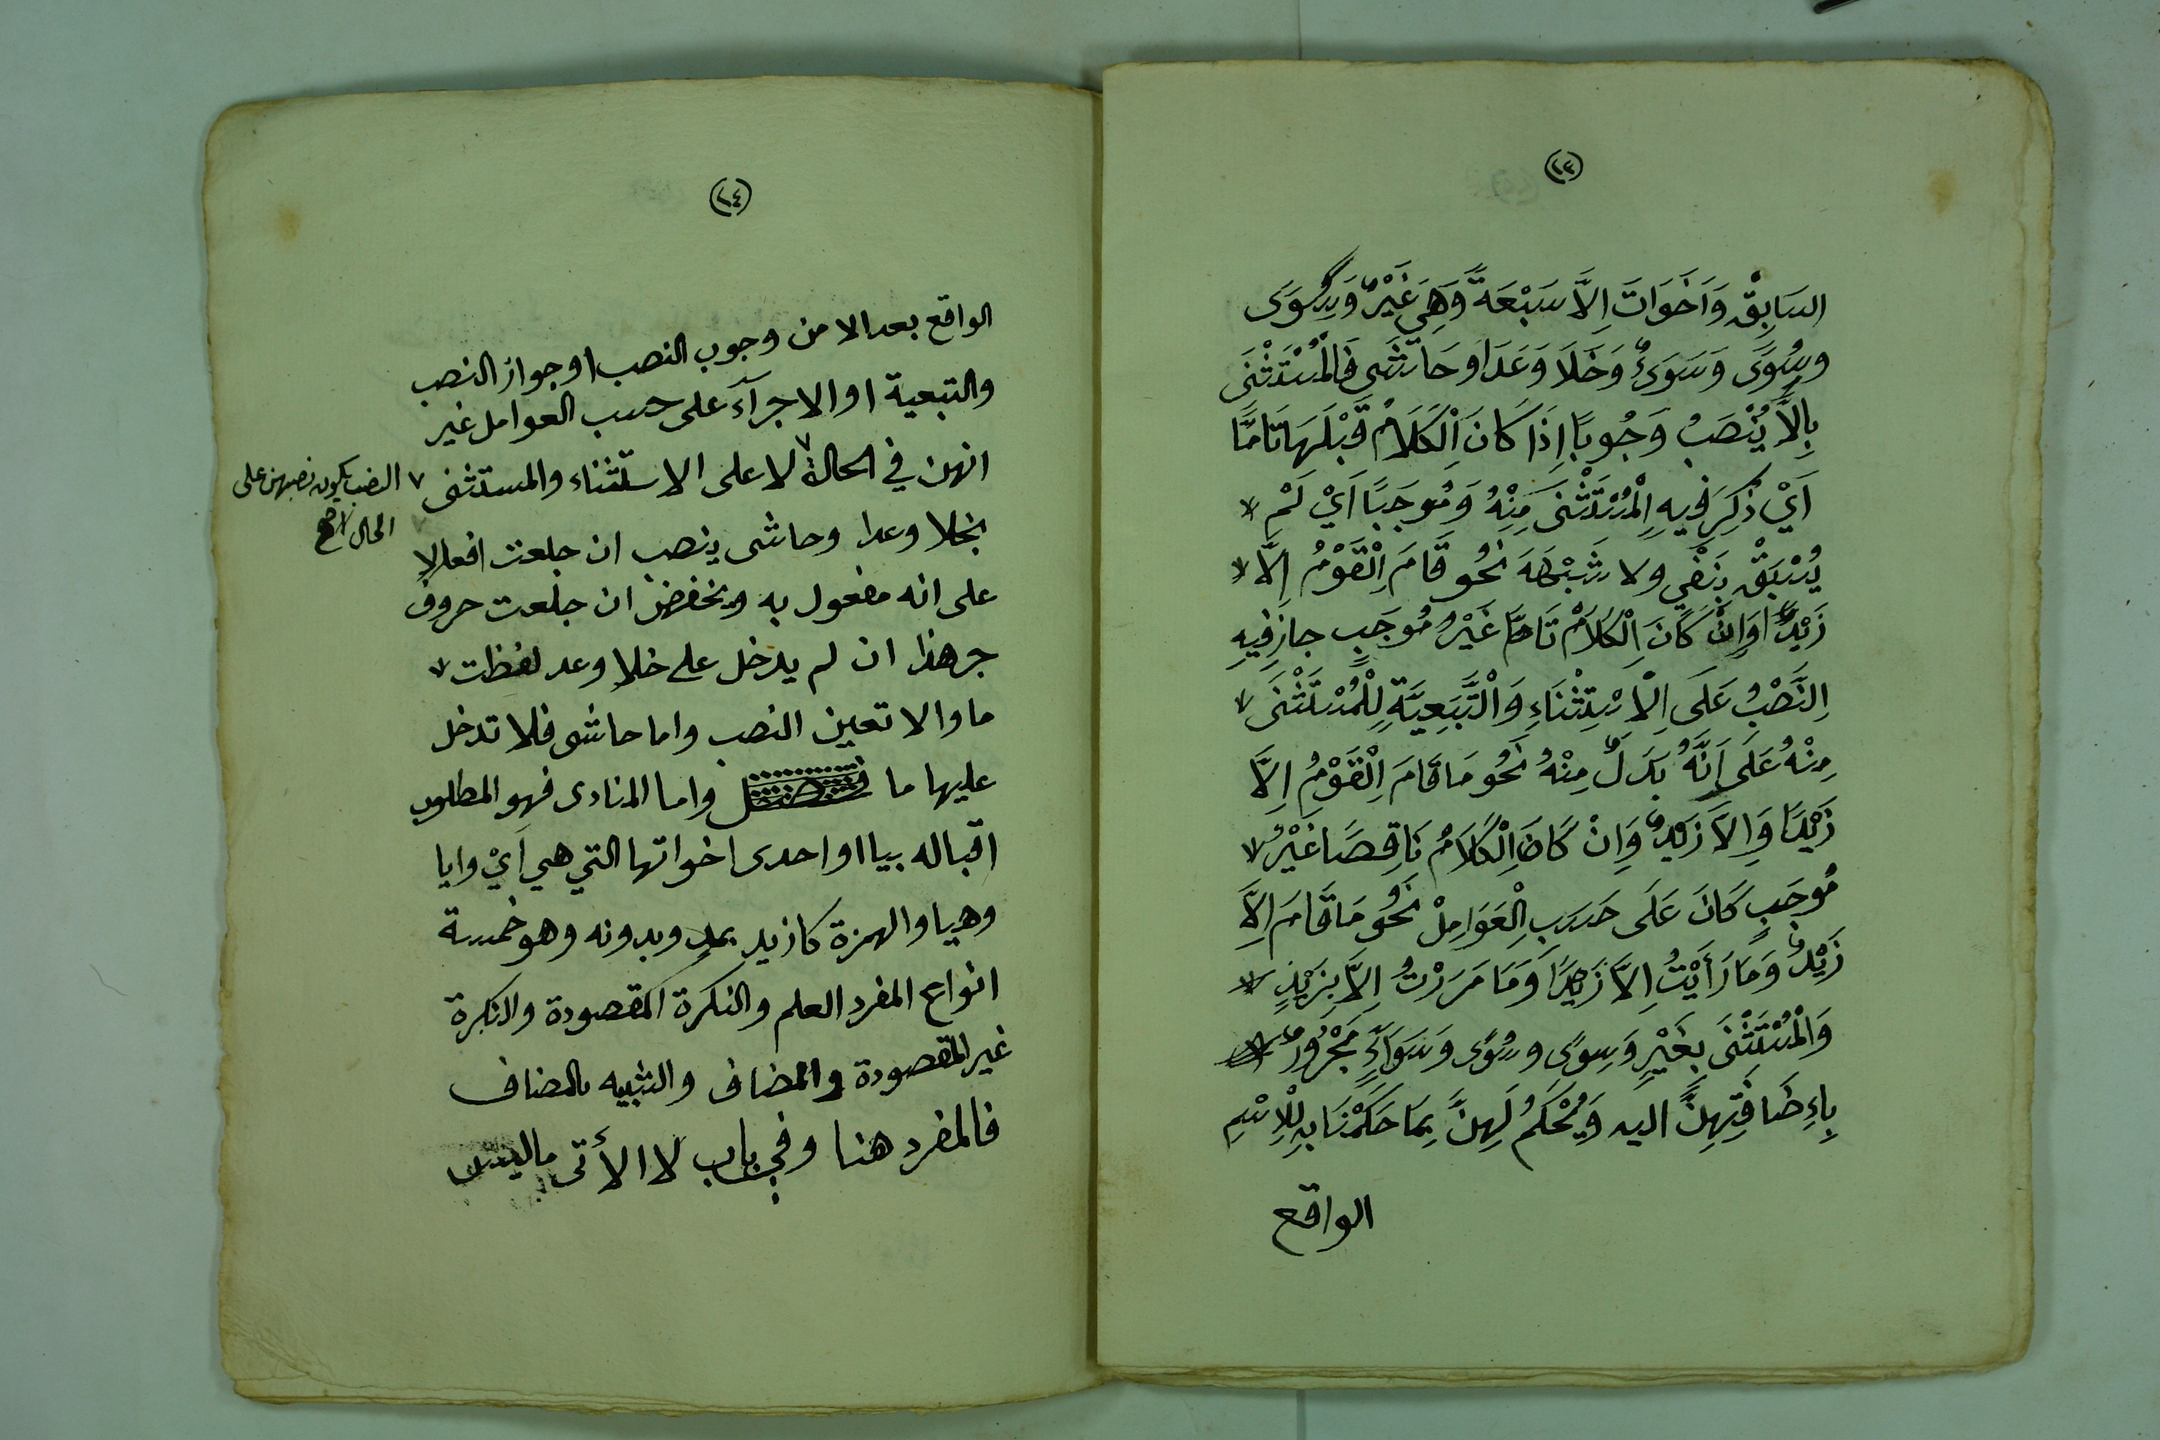 (٢٣)
السَابِقْ وَاَخَوَاتَ اِلاَّ سَبْعَةٌ وَهِيَ غَيْرٌ وَسِوَى
وسُوَى وَسَوَىٌ وَخَلَا وَعَدَا وَحَاشَى فَالْمُسْتَثْنَى
بِاِلاَّ يُنْصَبُ وَجُوبًا اِذَا كَانَ اْلكَلَامُ قَبْلَهَا تَامًّا
اَيْ ذُكِرَ فِيهِ اِلْمُسْتَثْنَى مَنِهُ وَمُوجَبًا اَيْ لَمْ
يُسْبَقْ بِنَفْيٍ ولا شَبْهَهَ نَحُو قَامَ اِلْقَوْمُ اِلاَّ
زَيْدٌ اوَاِنْ كَانَ اِلْكَلَامُ تَامًّا غَيْرُ مُوجَبٍ جازَ فِيهِ
اِلنَّصْبُ عَلَى اِلْاسْتِثْنَاءِ وَالْتَّبَعِيَّةِ لِلْمُسْتَثْنَى
مِنْهُ عَلَى اَنَّهُ بَدَلٌ مِنْهُ نَحُو مَا قَامَ اِلْقَوْمُ اِلاَّ
زَيْدًا وَاِلاَ زَيْدٌ وَاِنْ كَانَ اِلْكَلَامُ نَاقِصًا غَيْرُ
مُوجَبٍ كَانَ عَلَى حَسَبِ اِلْعَوَامِلْ نَحُو مَا قَامَ اِلاَّ
زَيْدٌ وَمَا رَأَيْتُ اِلاَّ زَيْدًا وَمَا مَرَرْتُ اِلاَّ بِزَيْدٍ
وَالْمُسْتَثْنَى بِغَيْرٍ وَسِوىً وسُوىً وَسَوَاءٍ مَجْرُورٌ
بِاِضَافَتِهِنَّ اليه وَيُحْكَمُ لَهِنَّ بِمَا حَكَمْنَا بِهِ لِلْاِسْمِ
الواقع
(٢٤)
الواقع بعد الا من وجوب النصب او جواز النصب
والتبعية او الاجرآءَ على حسب العوامل غير
انهن في الحالة ٧ لا على الاستثناء والمستثنى
٧ النصب يكون نصبهن على
الحال
بخلا وعدا وحاشى ينصب ان جلعت افعالا
على انه مفعول به ويخفض ان جلعت حروف
جر هذا ان لم يدخل على خلا وعد لفظت
ما والا تعين النصب واما حاشى فلا تدخل
عليها ما فصل واما المنادى فهو المطلوب
اقباله بيا او احدى اخواتها التي هي اَيْ وايا
وهيا والهمزة كازيد بمد وبدونه وهو خمسة
انواع المفرد العلم والنكرة المقصودة والنكرة
غير المقصودة والمضاف والشبيه بالمضاف
فالمفرد هنا وفي باب لا الأتى ماليس